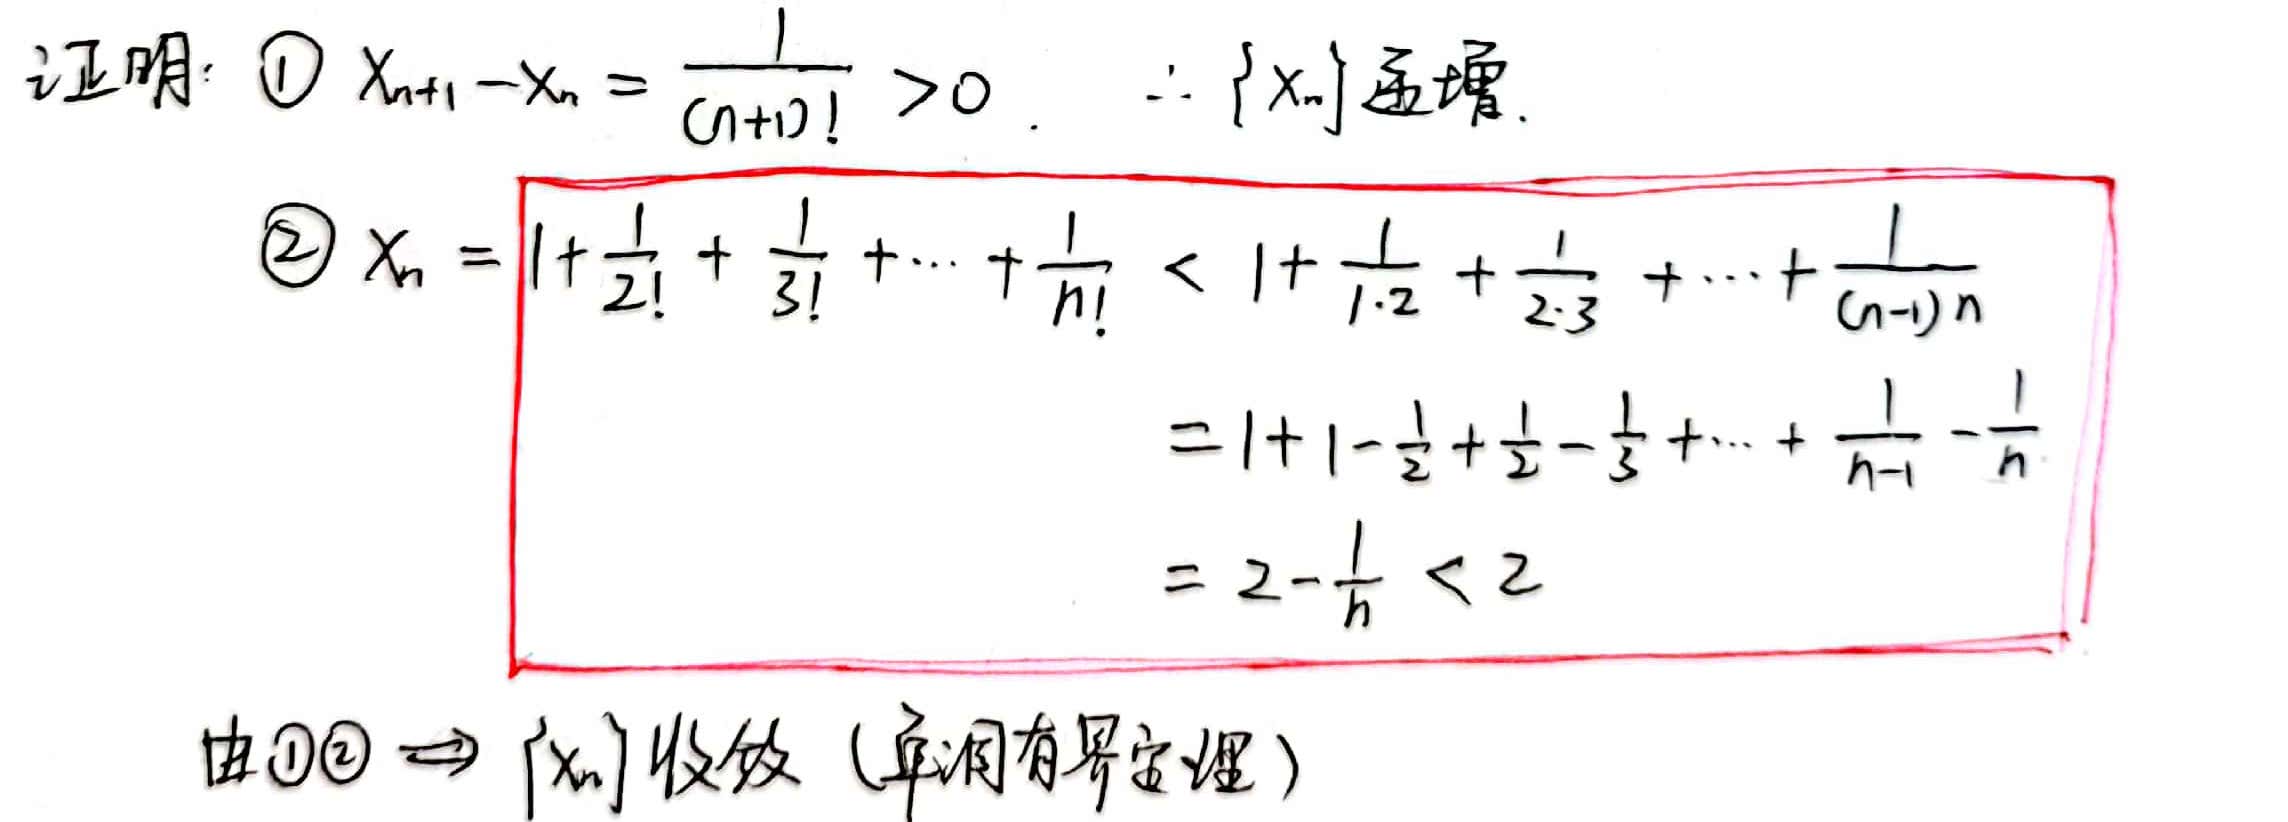 证明: ① xₙ₊₁ - xₙ = 1/(n+1)! > 0. ∴ {xₙ} 递增.
② xₙ = 1 + 1/2! + 1/3! + ⋯ + 1/n! < 1 + 1/(1·2) + 1/(2·3) + ⋯ + 1/((n-1)n)
= 1 + 1 - 1/2 + 1/2 - 1/3 + ⋯ + 1/(n-1) - 1/n
= 2 - 1/n < 2
由①② ⇒ {xₙ} 收敛 (单调有界定理)